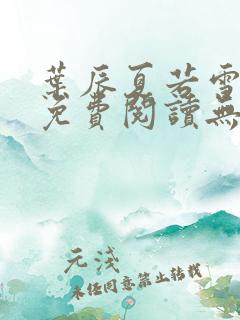 葉辰夏若雪
免費閱讀無
元淺
未經同意禁止轉載